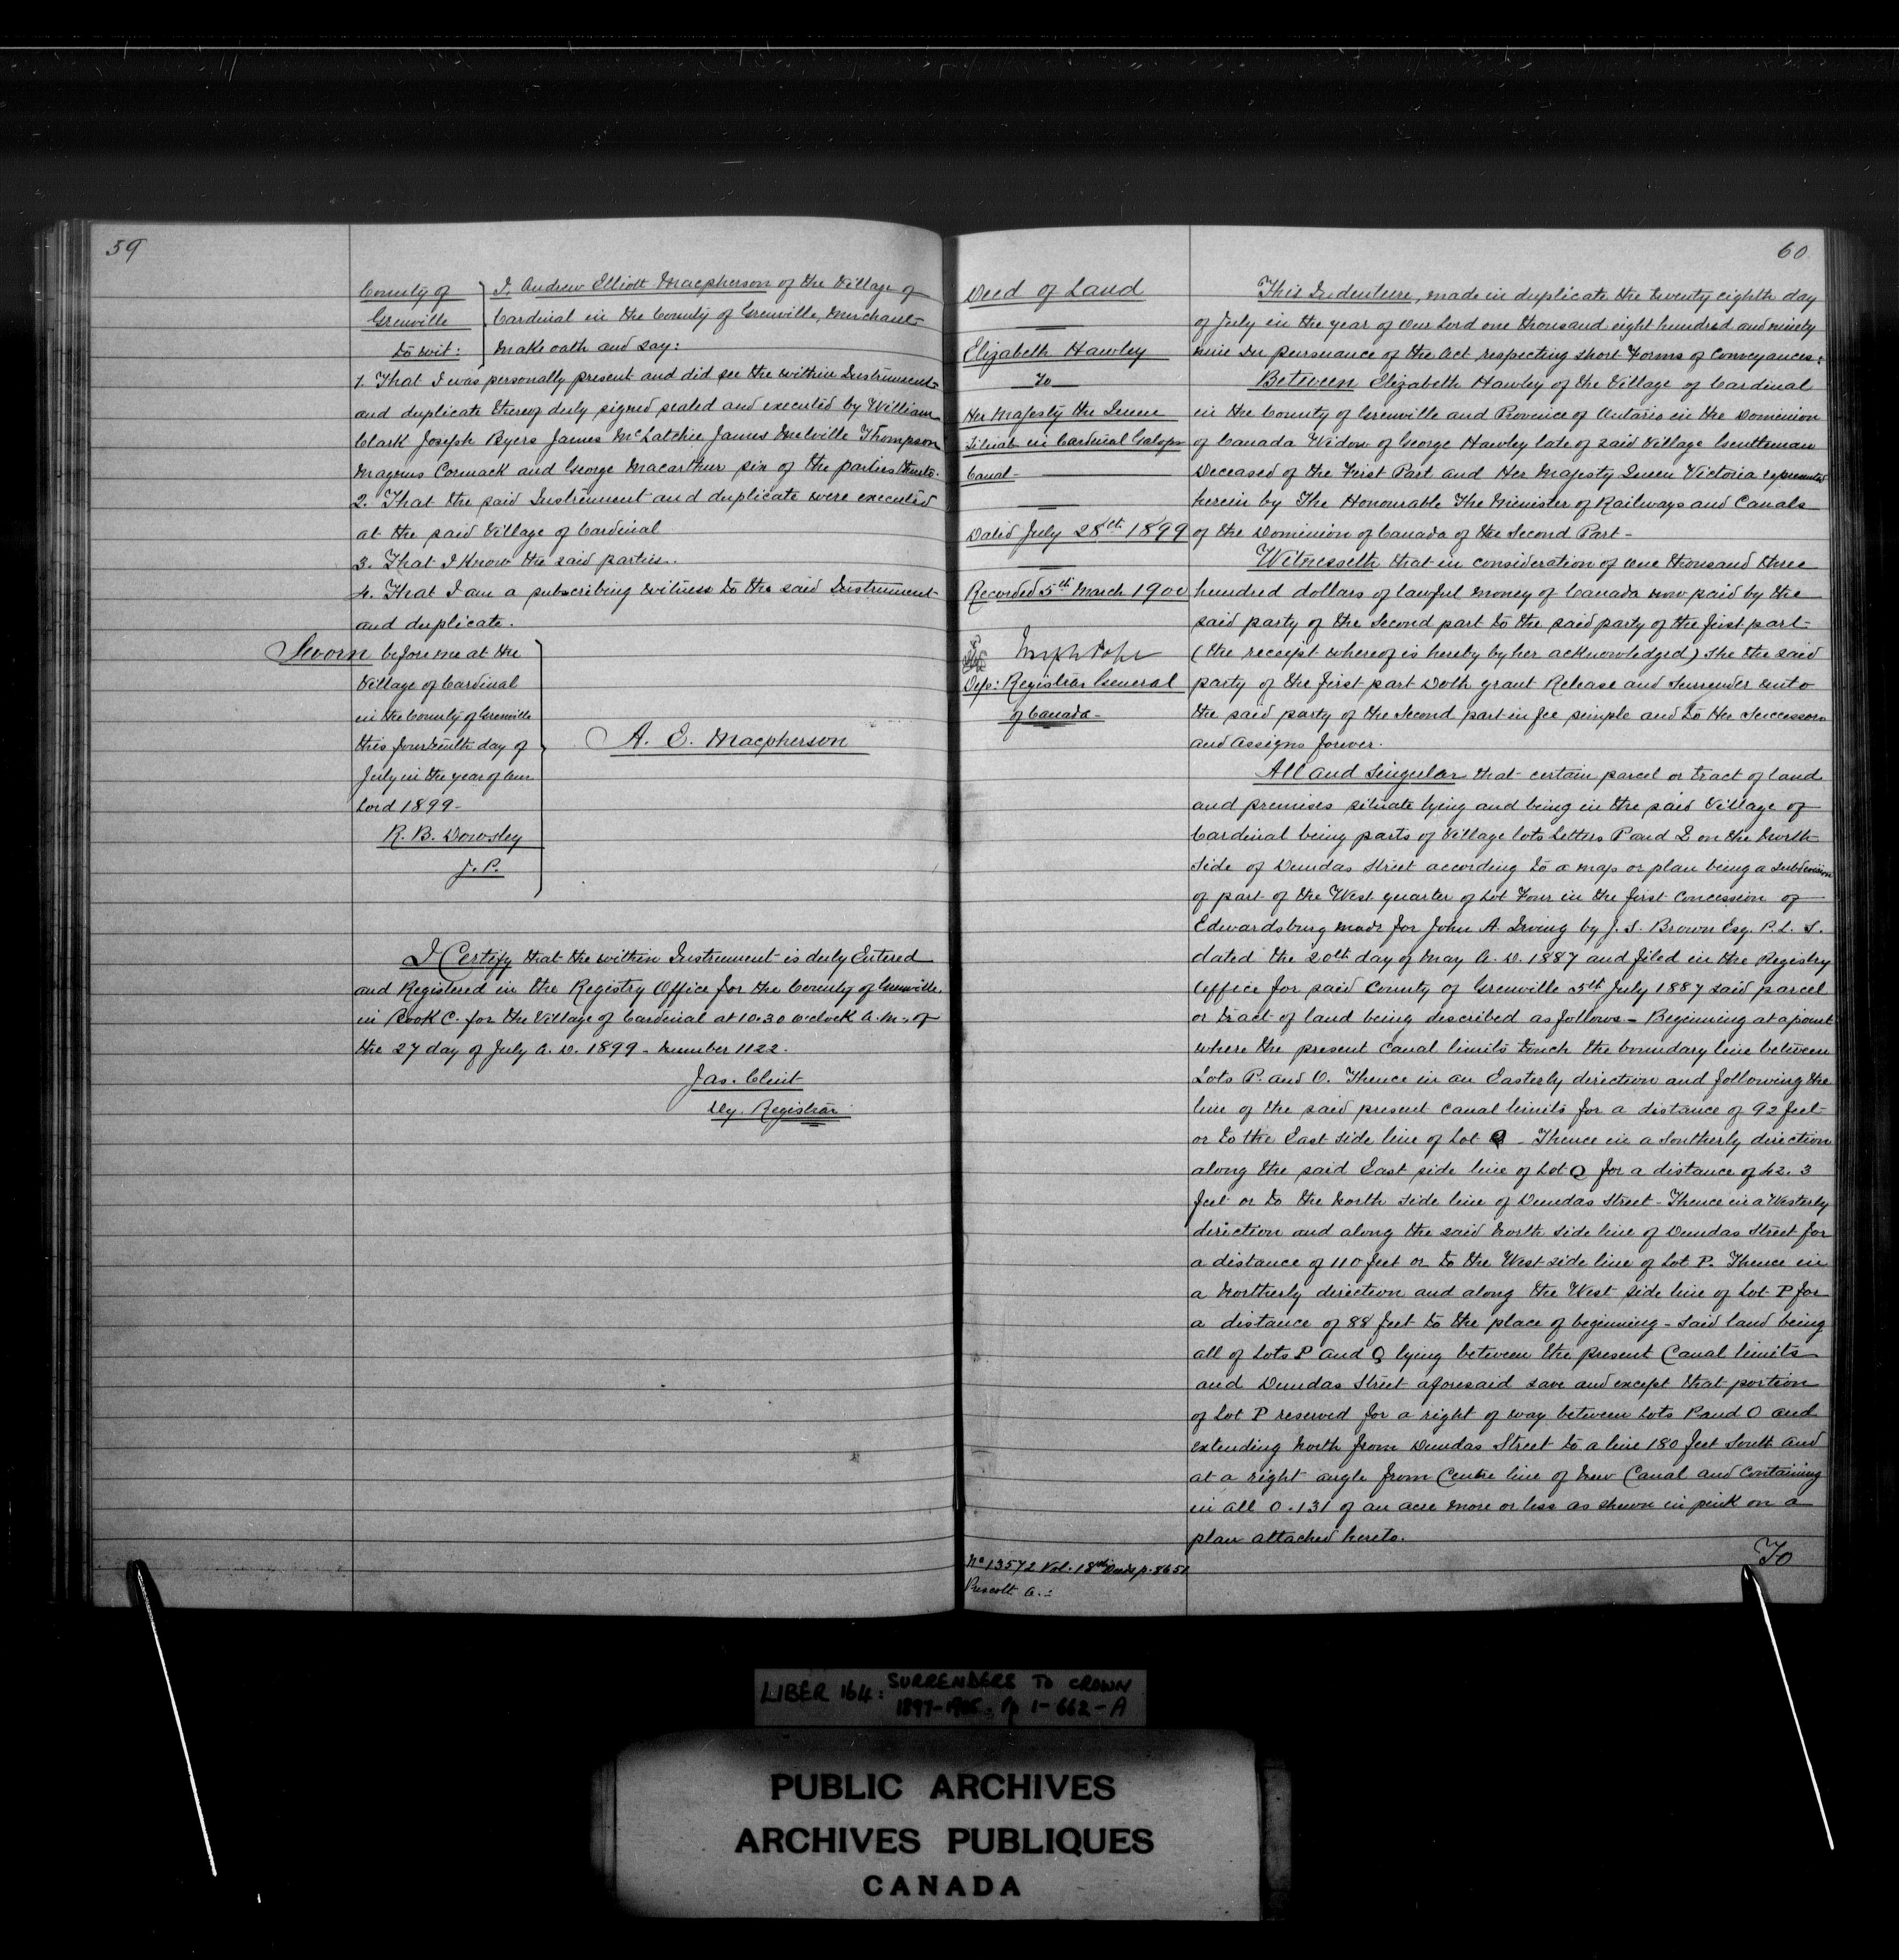 59
County of
Grenville
to wit:
I, Andrew Elliott Macpherson of the Village of
Cardinal in the County of Grenville, Merchant
make oath and say:
1. That I was personally present and did see the within Instrument
and duplicate thereof duly signed sealed and executed by William
Clark Joseph Byers James McLatchie James Melville Thompson
Magnus Cormack and George Macarthur six of the parties thereto.
2. That the said Instrument and duplicate were executed
at the said Village of Cardinal
3. That I know the said parties.
4. That I am a subscribing witness to the said Instrument
and duplicate.
Sworn before me at the
Village of Cardinal
in the County of Grenville
this fourteenth day of
July in the year of our
Lord 1899-
R. B. Dowsley
J. P.
A. E. Macpherson
I Certify that the within Instrument is duly Entered
and Registered in the Registry Office for the County of Grenville.
in Book C. for the Village of Cardinal at 10.30 o'clock A.M., of
the 27 day of July A. D. 1899 - Number 1122.
Jas. Clint
Dy. Registrar
60
Deed of Land
Elizabeth Hawley
To
Her Majesty the Queen
Situate in Cardinal Galops
Canal
Dated July 28th 1899
Recorded 5th March 1900
Joseph Pope
Dep: Registrar General
of Canada-
This Indenture, made in duplicate the twenty eighth day
of July in the year of our Lord one thousand eight hundred and ninety
nine In pursuance of the Act respecting Short Forms of Conveyances:
Between Elizabeth Hawley of the Village of Cardinal
in the County of Grenville and Province of Ontario in the Dominion
of Canada Widow of George Hawley late of said Village Gentleman
Deceased of the First Part and Her Majesty Queen Victoria represented
herein by The Honourable The Minister of Railways and Canals
of the Dominion of Canada of the Second Part-
Witnesseth that in consideration of One thousand three
hundred dollars of lawful money of Canada now paid by the
said party of the Second part to the said party of the first part-
(the receipt whereof is hereby by her acknowledged) She the said
party of the first part Doth grant Release and Surrender unto
the said party of the Second part in fee simple and to Her Successors
and Assigns forever.
All and Singular that certain parcel or tract of land
and premises situate lying and being in the said Village of
Cardinal being parts of Village lots Letters P and Q on the North
side of Dundas Street according to a map or plan being a Subdivision
of part of the West quarter of Lot Four in the first Concession of
Edwardsburg made for John A. Irving by J. S. Brown Esq. P. L. S.
dated the 20th day of May A. D. 1887 and filed in the Registry
Office for said County of Grenville 5th July 1887 said parcel
or tract of land being described as follows - Beginning at a point
where the present Canal limits touch the boundary line between
Lots P. and O. Thence in an Easterly direction and following the
line of the said present Canal limits for a distance of 92 feet-
or to the East side line of Lot Q - Thence in a Southerly direction
along the said East side line of Lot Q for a distance of 42.3
feet or to the North side line of Dundas Street - Thence in a Westerly
direction and along the said North side line of Dundas Street for
a distance of 110 feet or to the West side line of Lot P. Thence in
a Northerly direction and along the West side line of Lot P for
a distance of 88 feet to the place of beginning - said land being
all of Lots P and Q lying between the present Canal limits
and Dundas Street aforesaid save and except that portion
of Lot P reserved for a right of way between Lots P and O and
extending North from Dundas Street to a line 180 feet South and
at a right angle from Centre line of New Canal and Containing
in all 0.131 of an acre more or less as shewn in pink on a
plan attached hereto.
To
No 13572 Vol. 18 Deeds p. 8651
Prescott
LIBER 164: SURRENDERS TO CROWN
1897-1905, Pp 1-662-A
PUBLIC ARCHIVES
ARCHIVES PUBLIQUES
CANADA